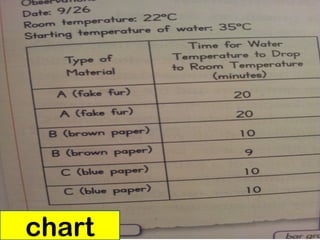 Date: 9/26
Room temperature: 22°C
Starting temperature of water: 35°C
Type of
Material
Time for Water
Temperature to Drop
to Room Temperature
(minutes)
A (fake fur) 20
A (fake fur) 20
B (brown paper) 10
B (brown paper) 9
C (blue paper) 10
C (blue paper) 10
chart